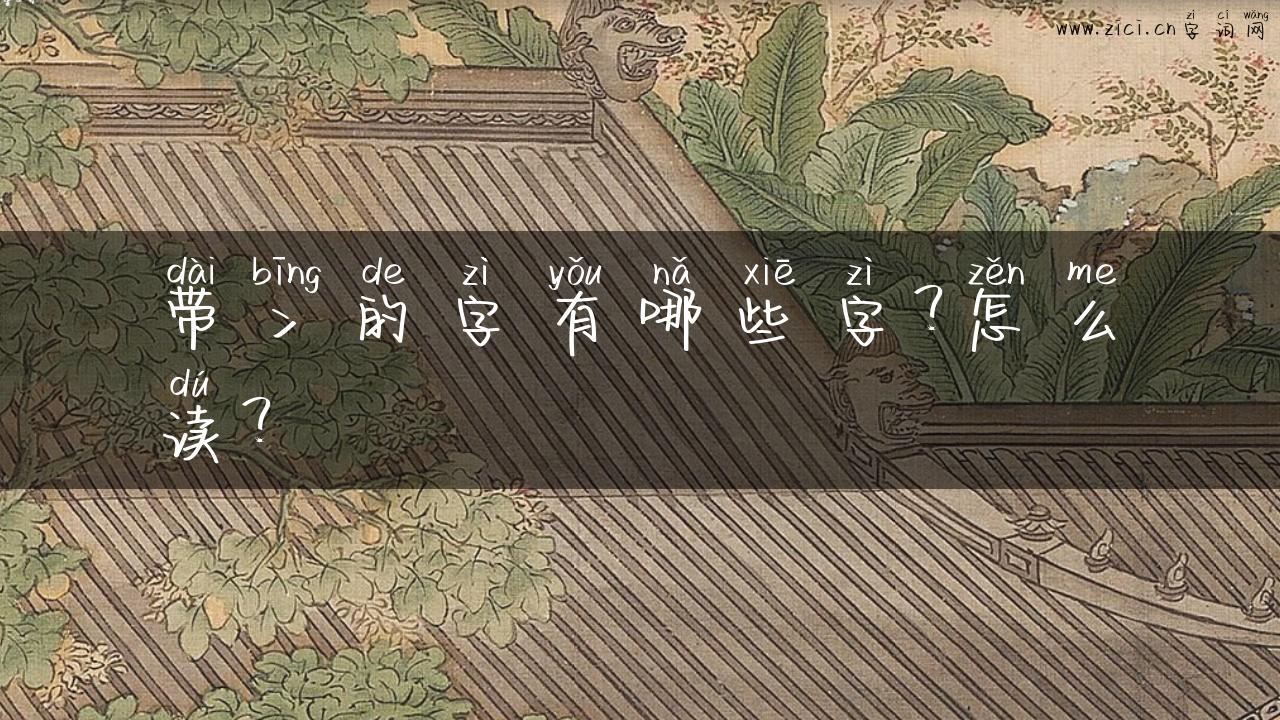 www.zici.cn 字词网
zì cí wǎng
dài bīng de zì yǒu nǎ xiē zì zěn me
带冫的字有哪些字？怎么
dú
读？